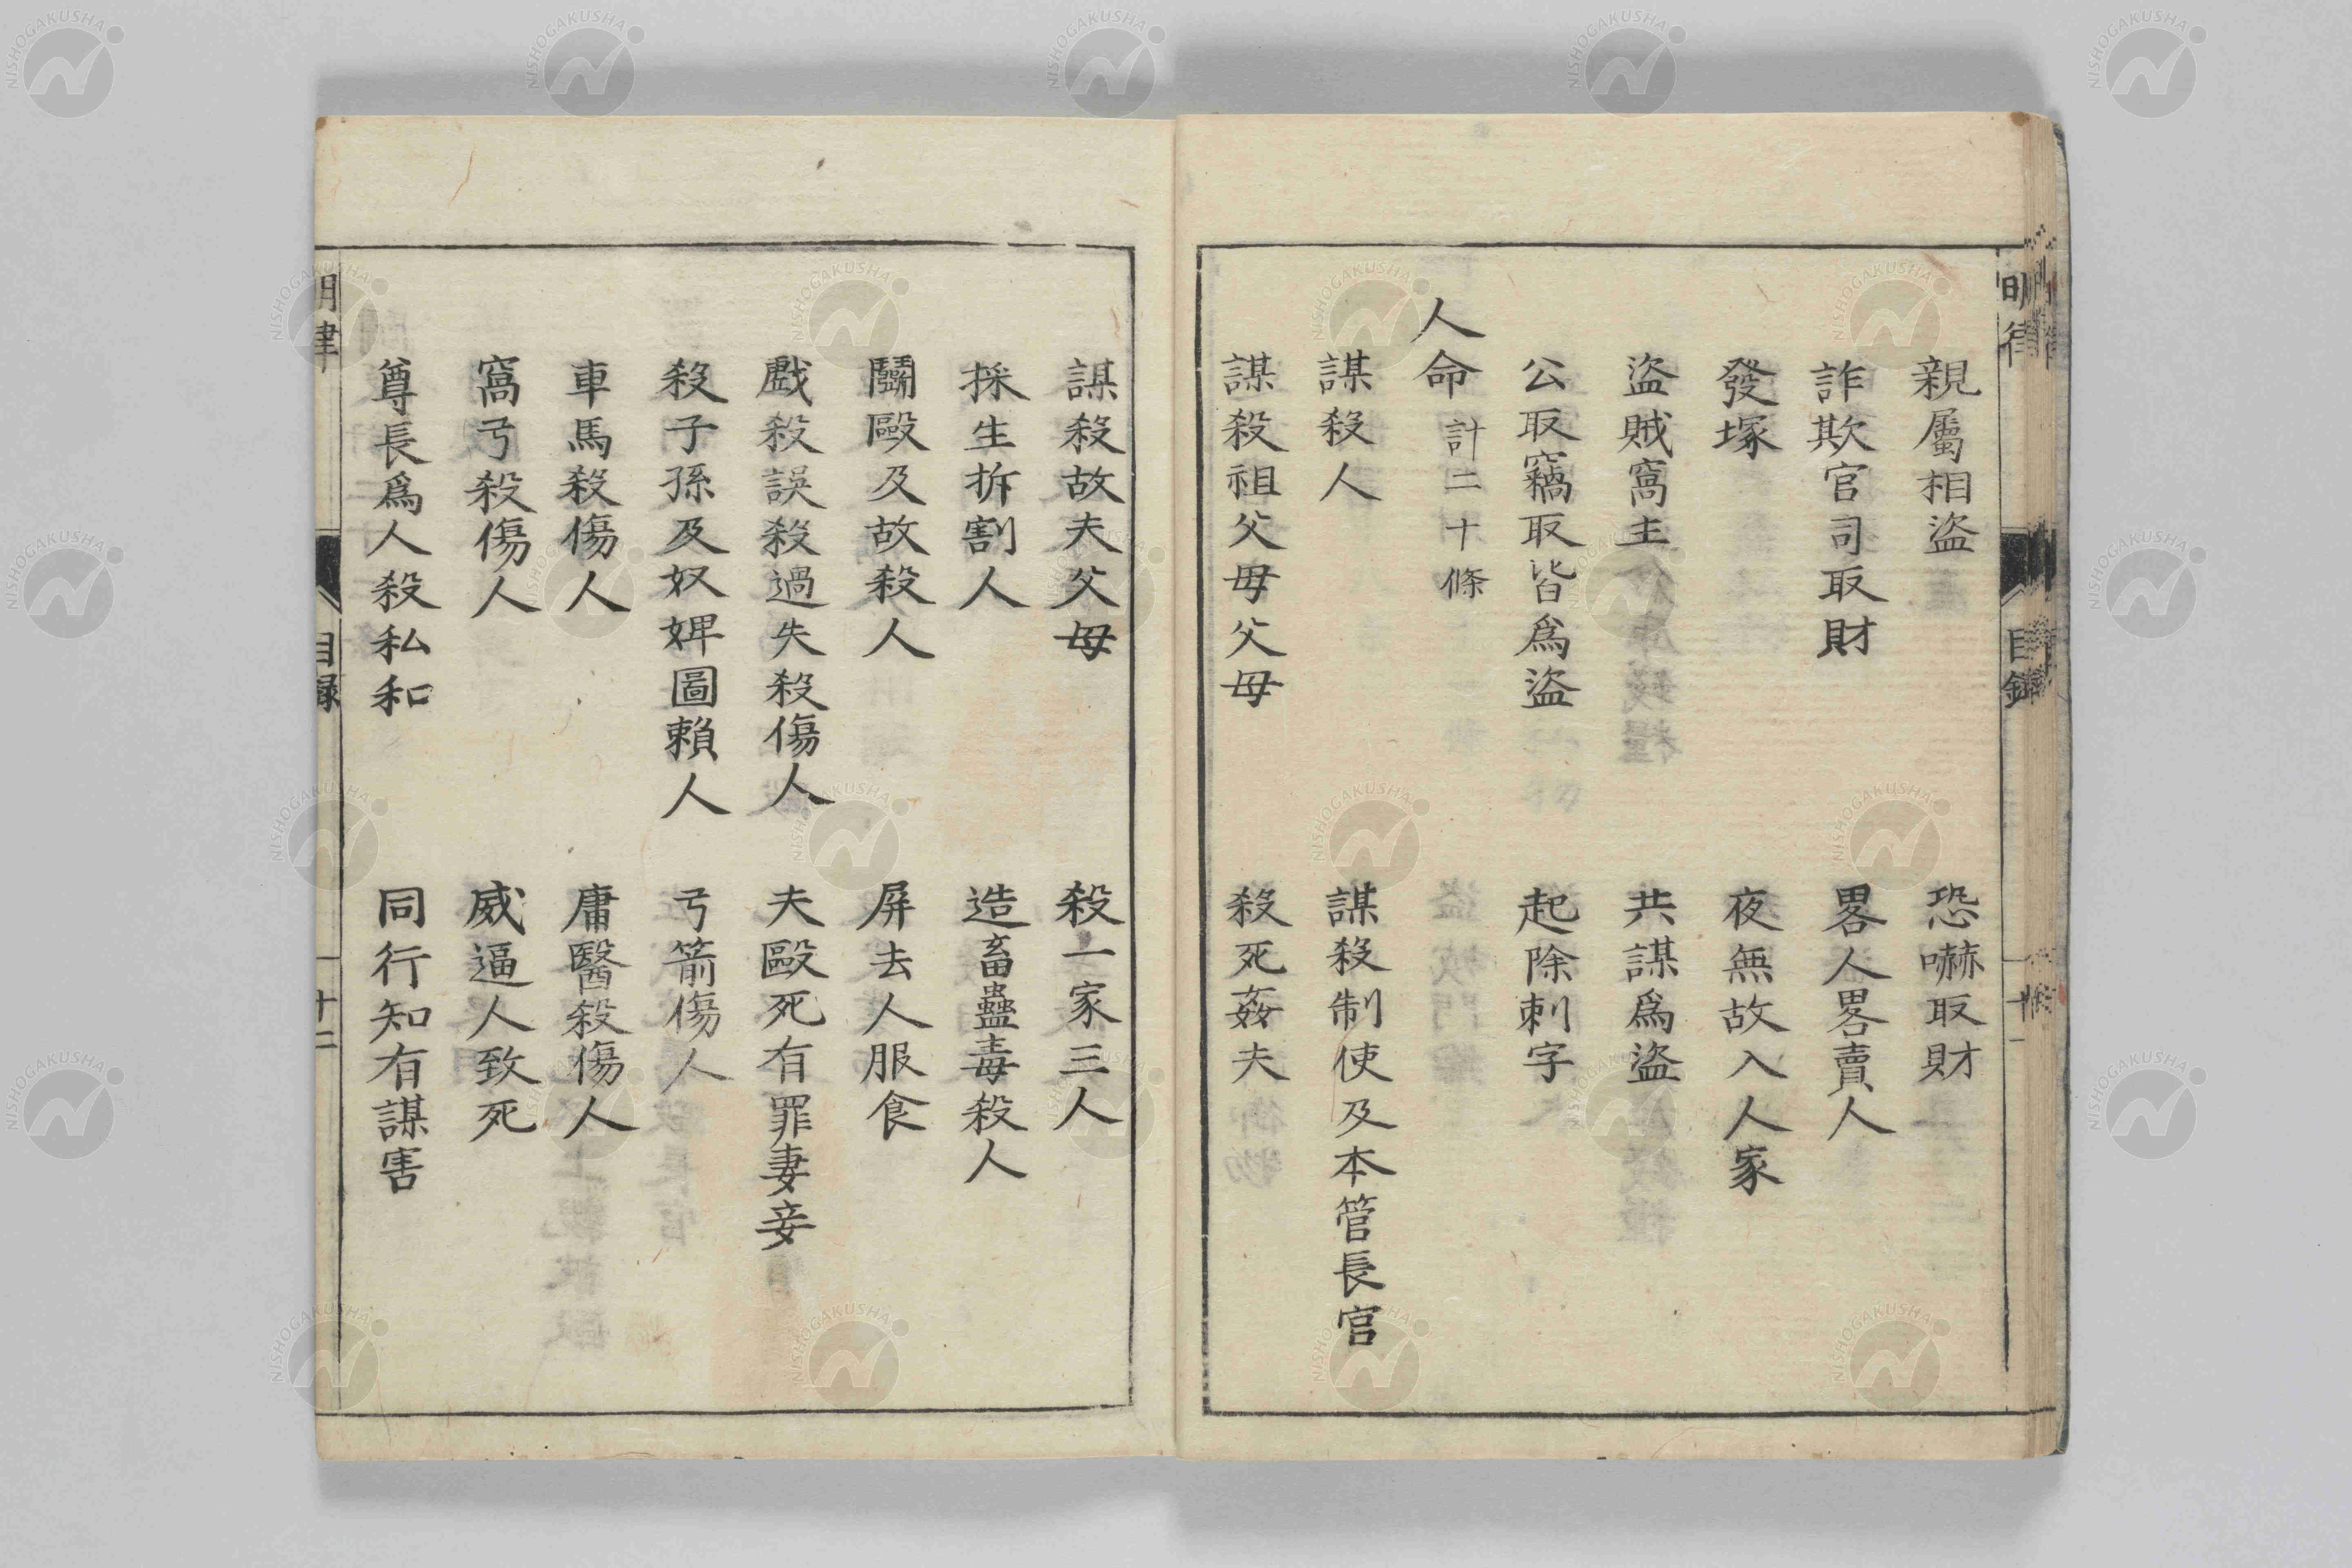 親屬相盜　恐嚇取財
詐欺官司取財　畧人畧賣人
發塚　夜無故入人家
盜賊窩主　共謀爲盜
公取竊取皆爲盜　起除刺字
人命計二十條
謀殺人　謀殺制使及本管長官
謀殺祖父母父母　殺死姦夫
謀殺故夫父母　殺一家三人
採生拆割人　造畜蠱毒殺人
鬭毆及故殺人　屏去人服食
戲殺誤殺過失殺傷人　夫毆死有罪妻妾
殺子孫及奴婢圖賴人　弓箭傷人
車馬殺傷人　庸醫殺傷人
窩弓殺傷人　威逼人致死
尊長爲人殺私和　同行知有謀害
明律　目録　十二
NISHOGAKUSHA